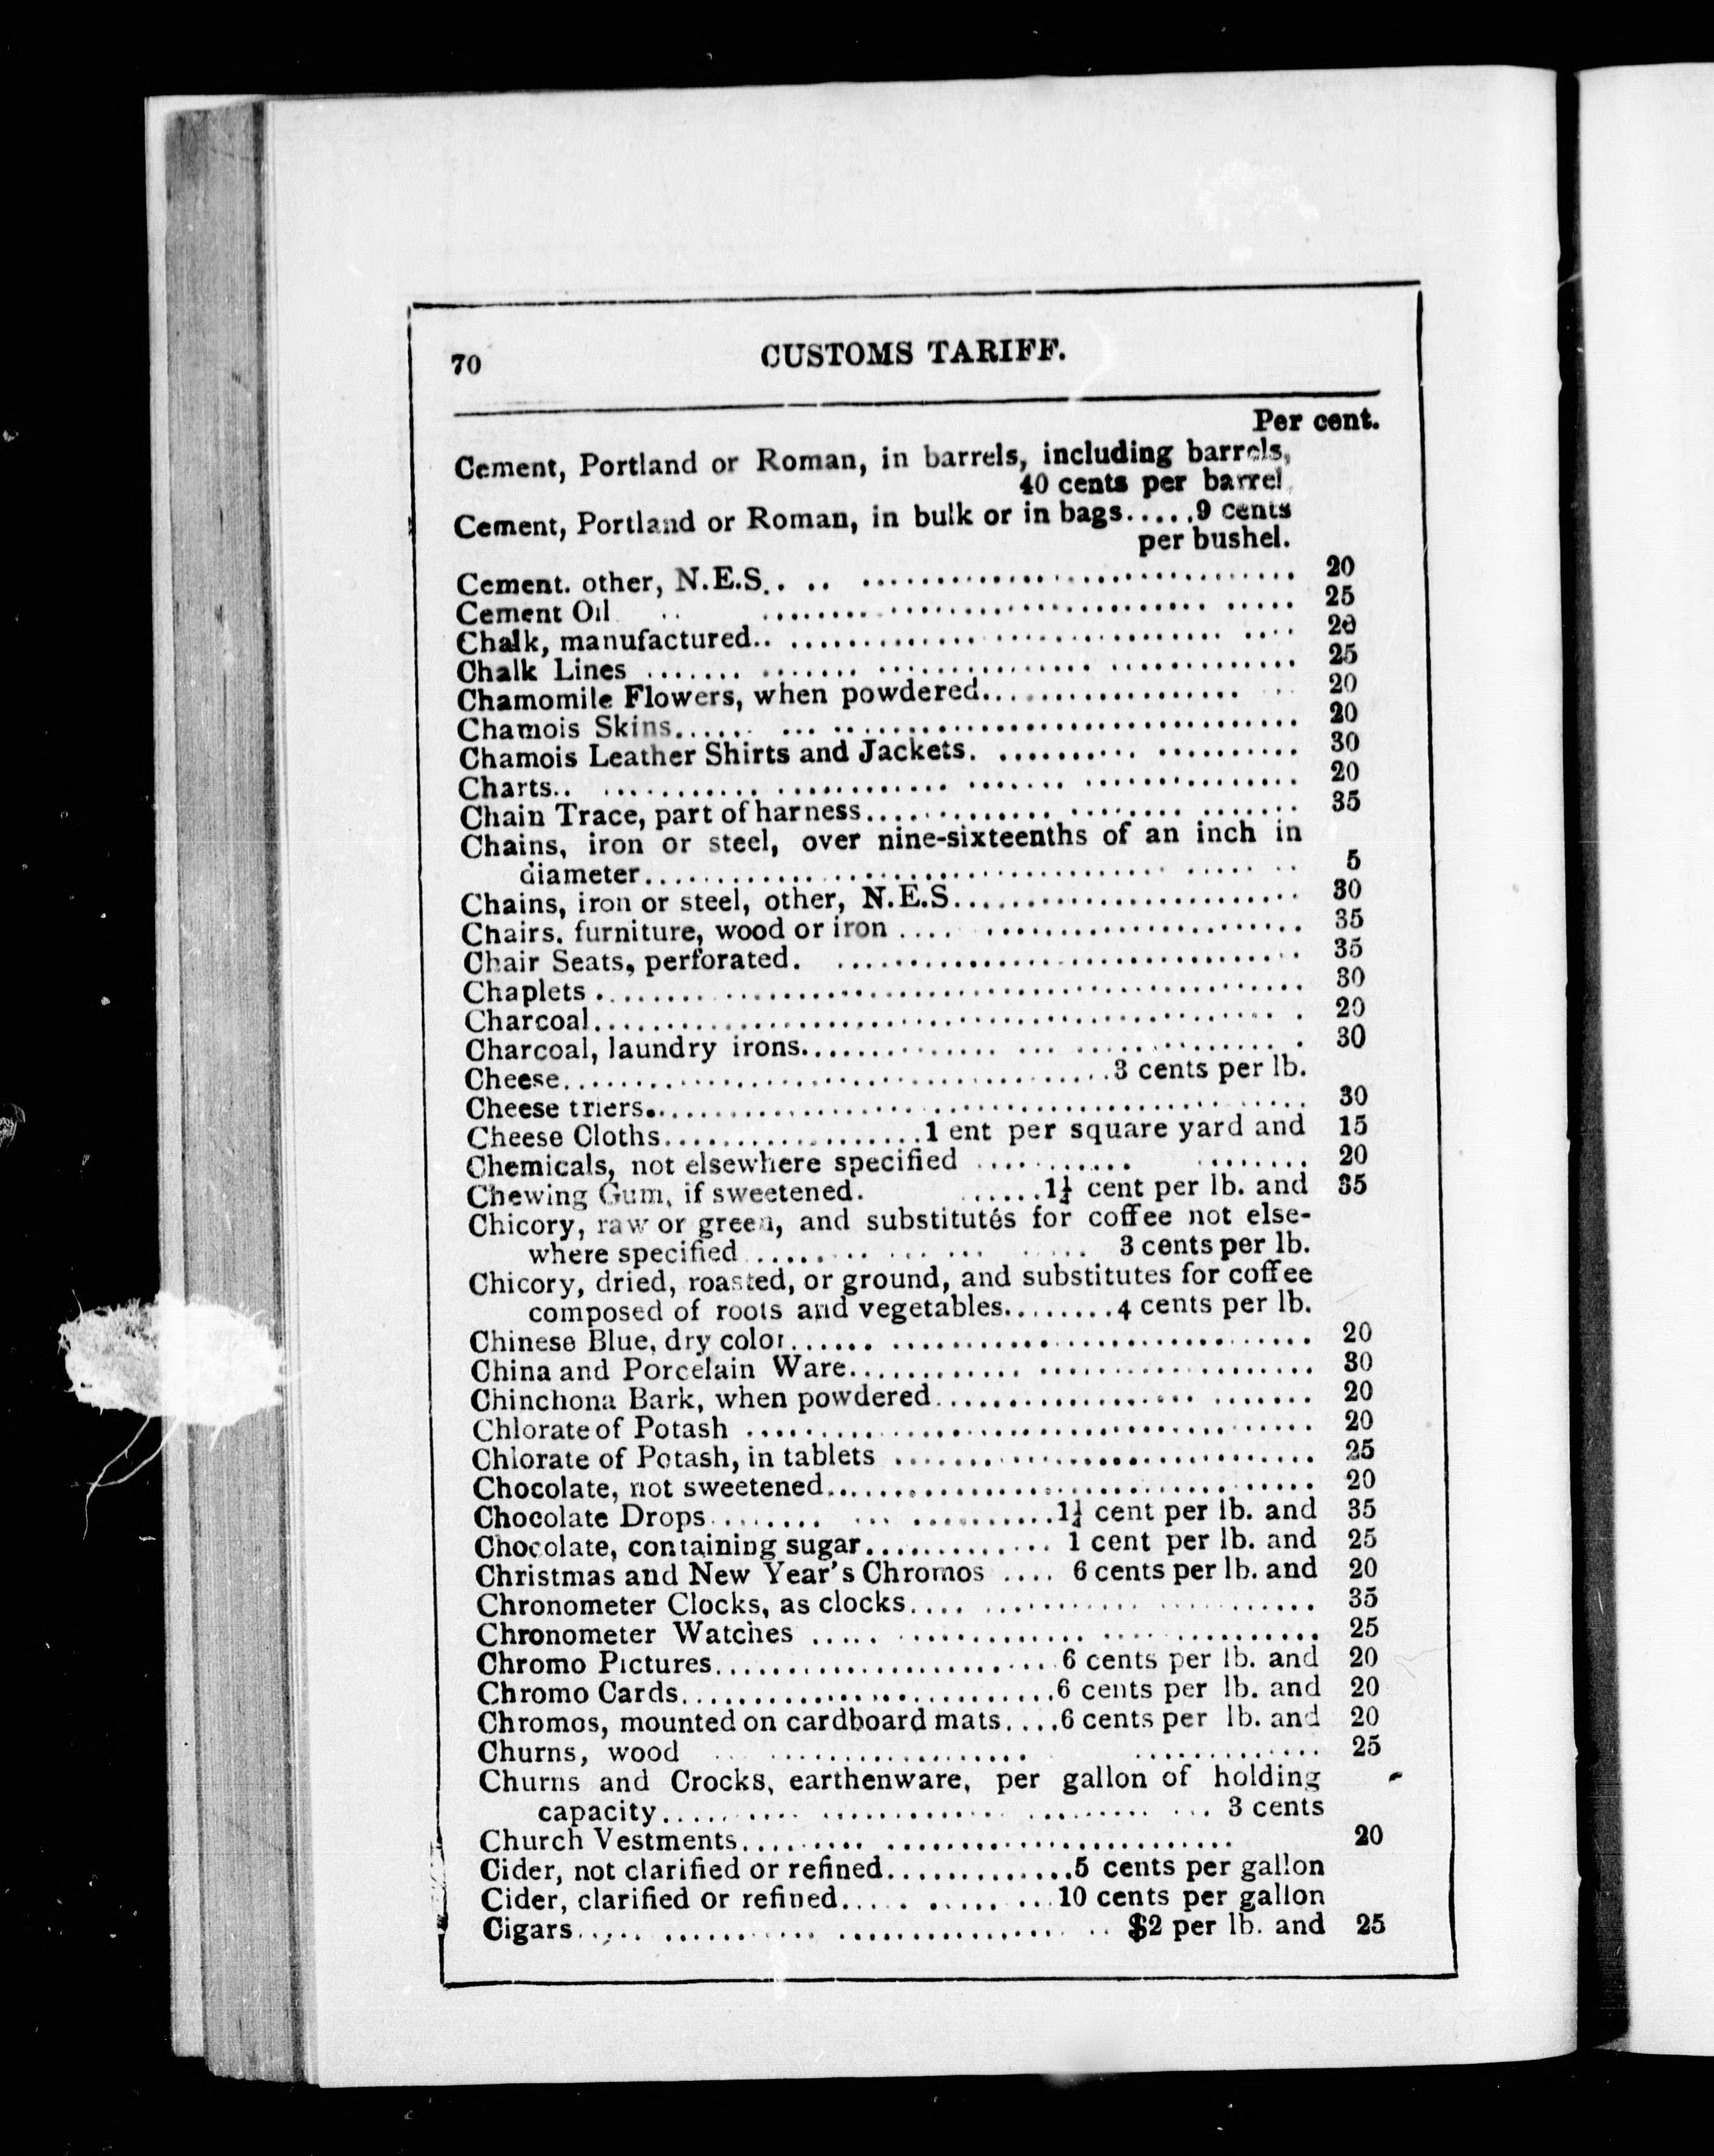 70 CUSTOMS TARIFF.
Per cent.
Cement, Portland or Roman, in barrels, including barrels,
40 cents per barrel
Cement, Portland or Roman, in bulk or in bags.....9 cents
per bushel.
Cement. other, N.E.S.. .. .............................. 20
Cement Oil .. .............................. ..... 25
Chalk, manufactured.. .............................. .... 20
Chalk Lines ....... ....... .............................. 25
Chamomile Flowers, when powdered.................. .. 20
Chamois Skins...... ... .............................. 20
Chamois Leather Shirts and Jackets. .......... .......... 30
Charts.. ........... ............ ....... ............... 20
Chain Trace, part of harness............. ........ ....... 35
Chains, iron or steel, over nine-sixteenths of an inch in
diameter.................................... ...... .. 5
Chains, iron or steel, other, N.E.S........................ 30
Chairs. furniture, wood or iron .... ...................... 35
Chair Seats, perforated. ................................ 35
Chaplets ................................................ 30
Charcoal............................................... . 20
Charcoal, laundry irons.............. ... ............... . 30
Cheese......................................3 cents per lb.
Cheese triers............................................. 30
Cheese Cloths..................1 ent per square yard and 15
Chemicals, not elsewhere specified ........... ........ 20
Chewing Gum, if sweetened. ......1½ cent per lb. and 35
Chicory, raw or green, and substitutés for coffee not else-
where specified ........ ... ... ..... 3 cents per lb.
Chicory, dried, roasted, or ground, and substitutes for coffee
composed of roots and vegetables........4 cents per lb.
Chinese Blue, dry color...... ............................. 20
China and Porcelain Ware............ ................... 30
Chinchona Bark, when powdered.................. ....... 20
Chlorate of Potash ....................................... 20
Chlorate of Potash, in tablets ............................. 25
Chocolate, not sweetened.................................. 20
Chocolate Drops........ ... ..........1½ cent per lb. and 35
Chocolate, containing sugar............. 1 cent per lb. and 25
Christmas and New Year's Chromos .... 6 cents per lb. and 20
Chronometer Clocks, as clocks.... ........... ........... 35
Chronometer Watches ..... ............. .... .......... 25
Chromo Pictures........................6 cents per lb. and 20
Chromo Cards..........................6 cents per lb. and 20
Chromos, mounted on cardboard mats....6 cents per lb. and 20
Churns, wood .................... ............. 25
Churns and Crocks, earthenware, per gallon of holding
capacity.......... ............. ......... ... 3 cents
Church Vestments......... ........................ 20
Cider, not clarified or refined.............5 cents per gallon
Cider, clarified or refined..... ..... ...10 cents per gallon
Cigars..... ........... ............... .. $2 per lb. and 25